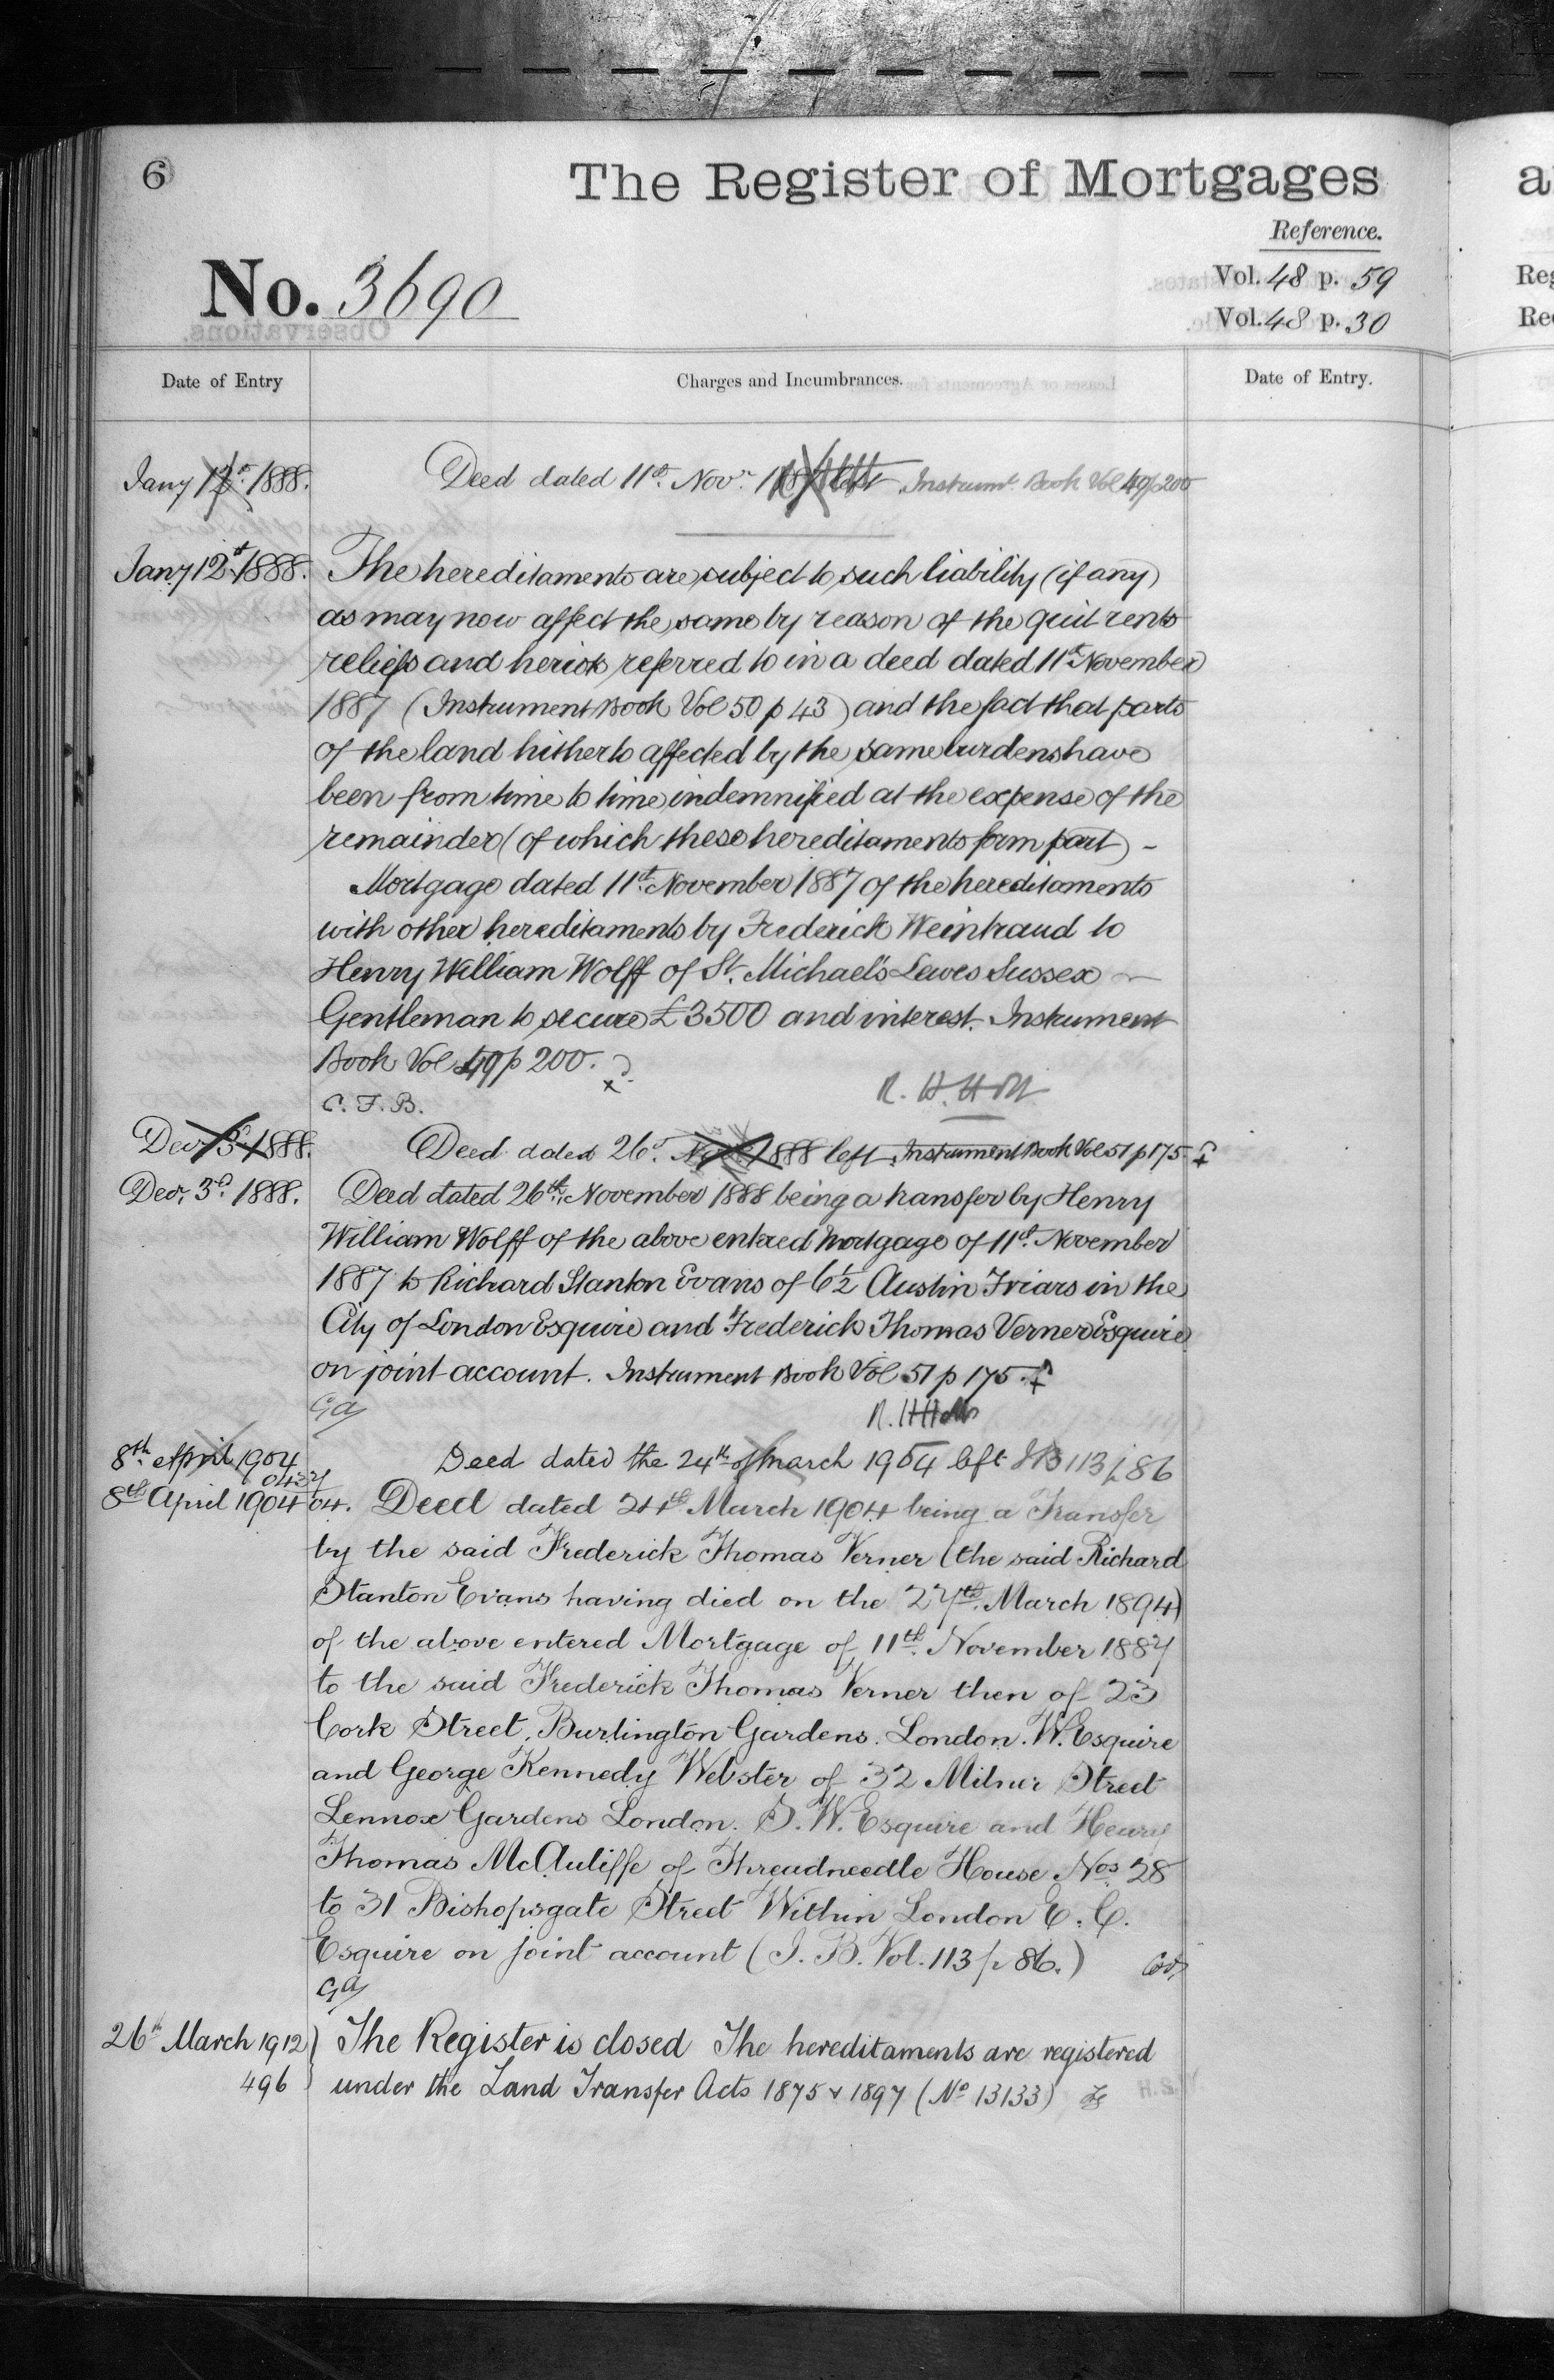 6
The Register of Mortgages
Reference.
No. 3690
Vol. 48 p. 59
Vol. 48 p. 30
Date of Entry
Charges and Incumbrances.
Date of Entry.
Jany 12th 1888.
Deed dated 11th Novr. 1887 left Instrumt. Book Vol 49 p 200
Jany 12th 1888.
The hereditaments are subject to such liability (if any)
as may now affect the same by reason of the quit rents
reliefs and heriots referred to in a deed dated 11th November
1887 (Instrument Book Vol 50 p 43) and the fact that parts
of the land hitherto affected by the same burdens have
been from time to time indemnified at the expense of the
remainder (of which these hereditaments form part) -
Mortgage dated 11th November 1887 of the hereditaments
with other hereditaments by Frederick Weintraud to
Henry William Wolff of St. Michael's Lewes Sussex
Gentleman to secure £3500 and interest. Instrument
Book Vol 49 p 200.
C. F. B.
R. H. Holt
Decr. 3d. 1888.
Deed dated 26th Novr 1888 left Instrument Book Vol 51 p 175
Decr. 3d. 1888.
Deed dated 26th November 1888 being a transfer by Henry
William Wolff of the above entered Mortgage of 11th November
1887 to Richard Stanton Evans of 6½ Austin Friars in the
City of London Esquire and Frederick Thomas Verner Esquire
on joint account. Instrument Book Vol 51 p 175.
GA
R. H. Holt
8th April 1904
Deed dated the 24th of March 1904 left IB 113 p 86
8th April 1904
04.
Deed dated 24th March 1904 being a Transfer
by the said Frederick Thomas Verner (the said Richard
Stanton Evans having died on the 27th March 1894)
of the above entered Mortgage of 11th November 1887
to the said Frederick Thomas Verner then of 23
Cork Street, Burlington Gardens. London. W. Esquire
and George Kennedy Webster of 32 Milner Street
Lennox Gardens London. S. W. Esquire and Henry
Thomas McAuliffe of Threadneedle House Nos 28
to 31 Bishopsgate Street Within London E. C.
Esquire on joint account (I. B. Vol. 113 p 86.)
GA
26th March 1912
The Register is closed The hereditaments are registered
496
under the Land Transfer Acts 1875 & 1897 (No 13133)
a
Reg
Re